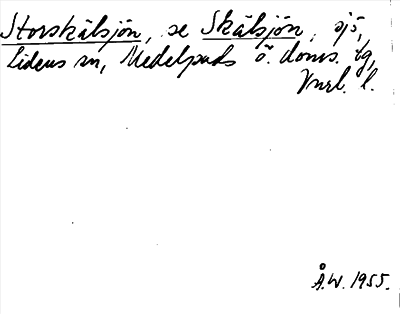 Storskälsjön, se Skälsjön, sjö,
Lidens sn, Medelpads ö. doms. tg,
Vnrl. l.
Å.W. 1955.